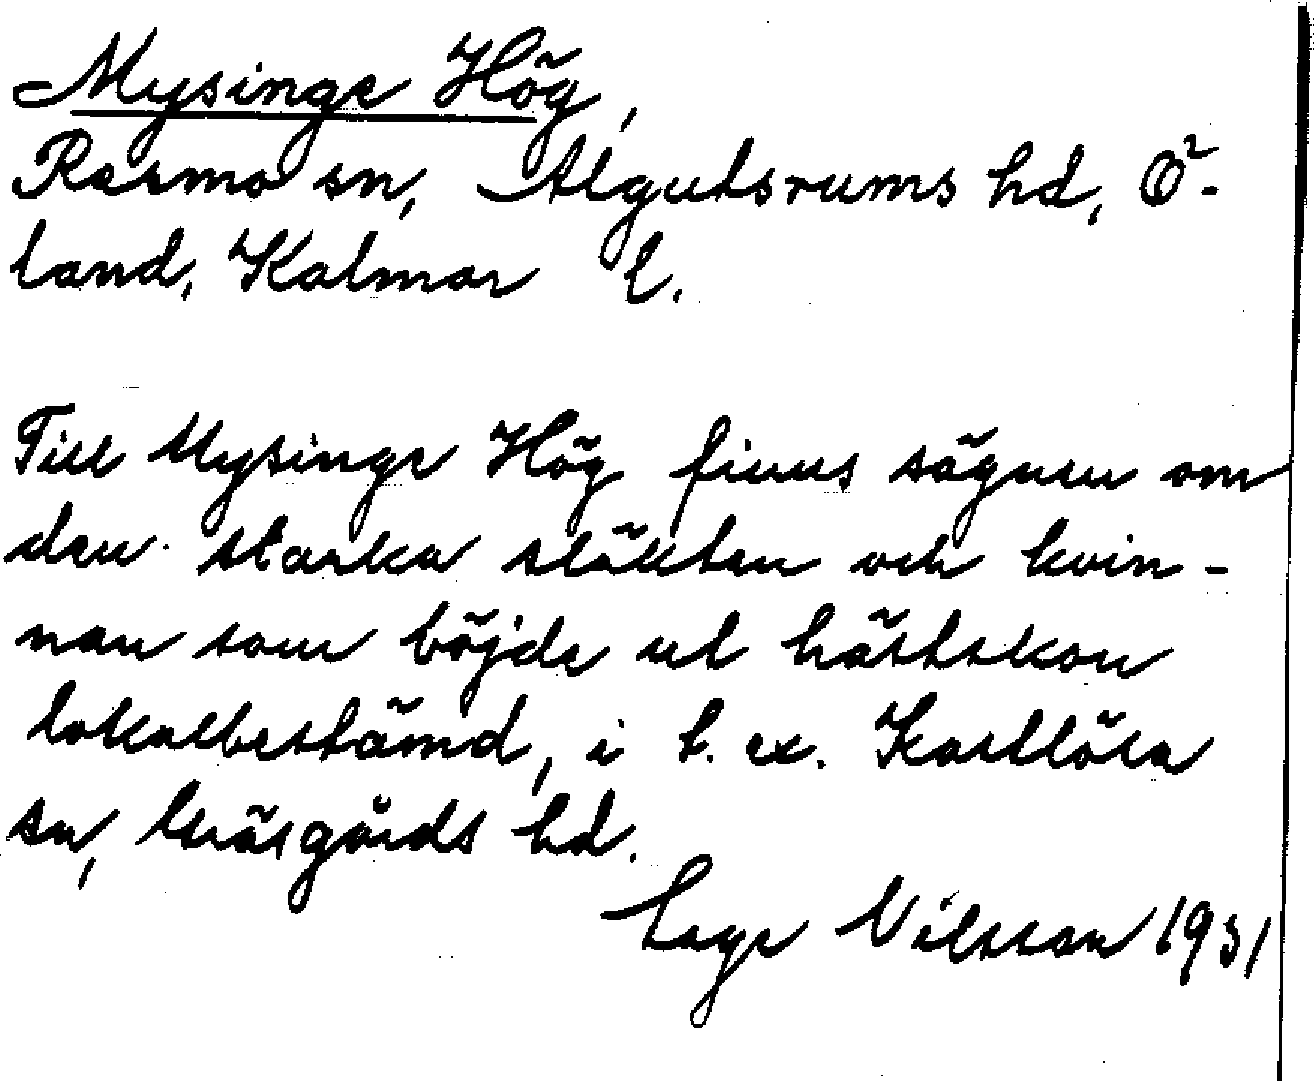 Mysinge Hög,
Resmo sn, Algutsrums hd, Ö-
land, Kalmar l.
Till Mysinge Hög finns sägnen om
den starka släkten och kvin-
nan som böjde ut hästskon
lokalbestämd, i t. ex. Kastlösa
sn, Gräsgårds hd.
Lage Nilsson 1931